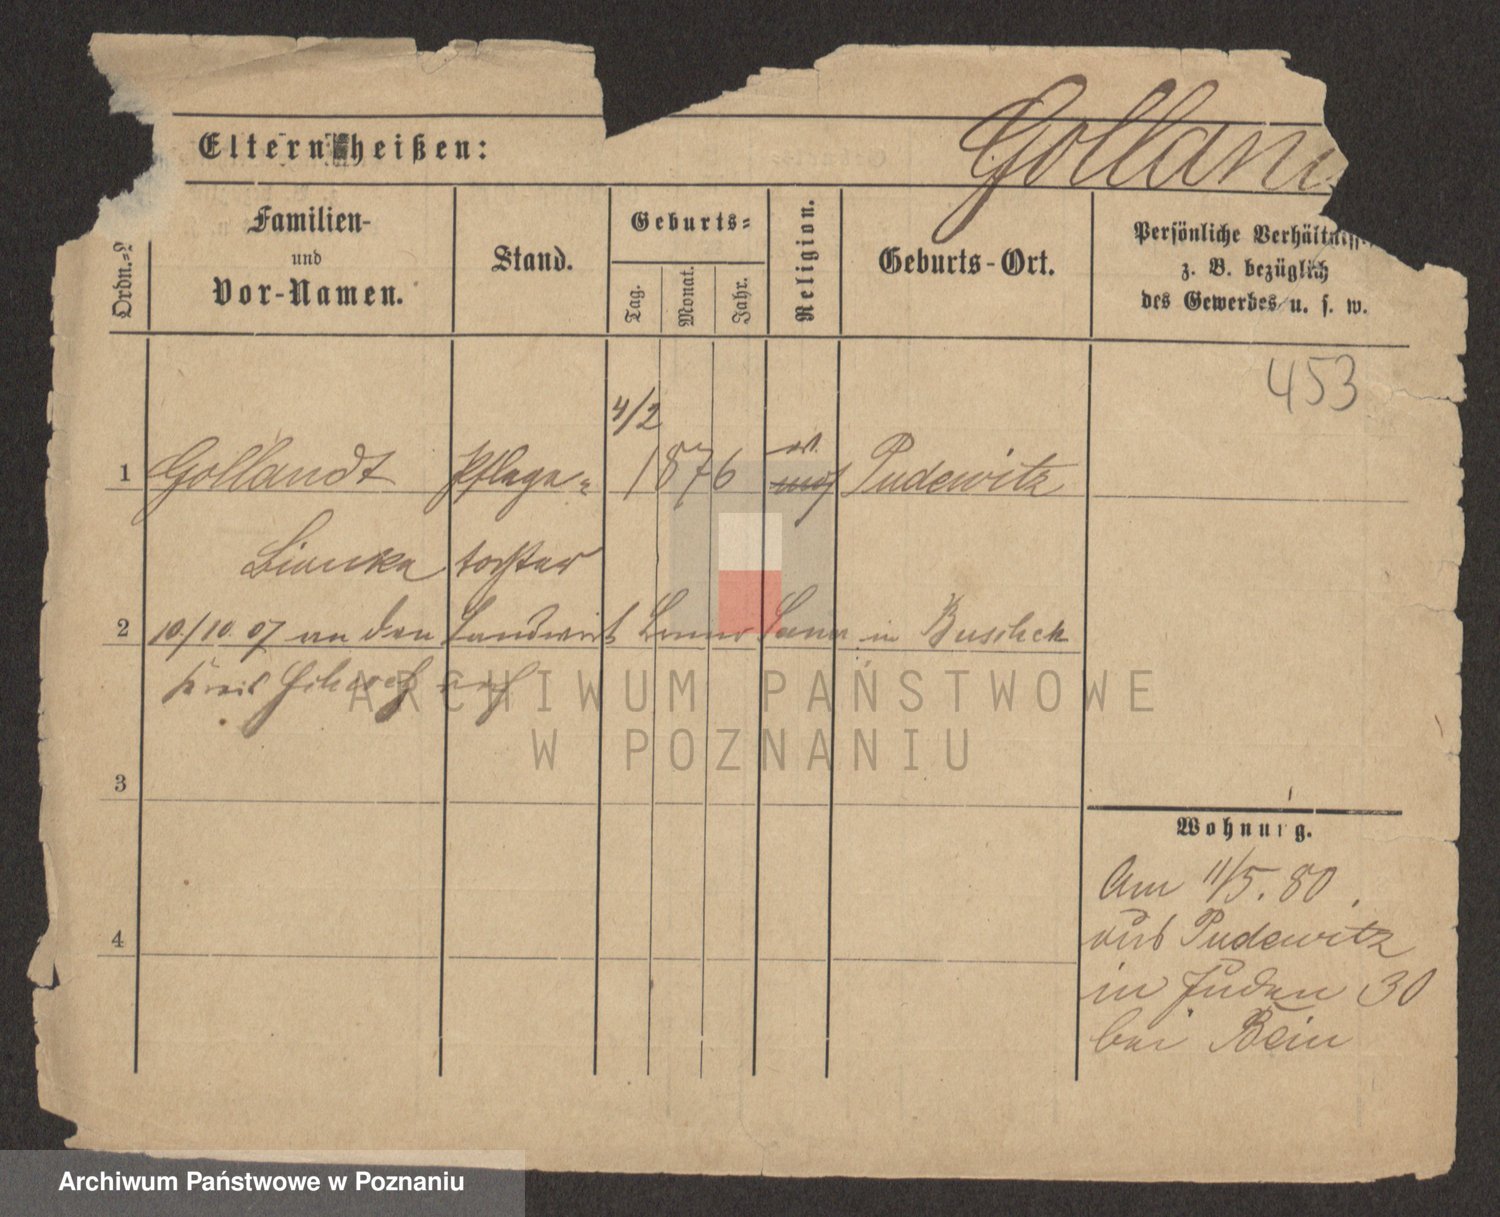 Gollan
Eltern heißen:
Ordn.-
Familien-
und
Vor-Namen.
Stand.
Geburts-
Tag.
Monat.
Jahr.
Religion.
Geburts-Ort.
Persönliche Verhältniss
z. B. bezüglich
des Gewerbes u. s. w.
453
4/2
1 Gollandt Pflege- 1876 ev. Pudewitz
Bianka tochter
2 10/10 07 an den Landwirt in
Kreis
3
4
Wohnung.
Am 11/5. 80.
aus Pudewitz
in Juden 30
bei Bein
ARCHIWUM PAŃSTWOWE
W POZNANIU
Archiwum Państwowe w Poznaniu